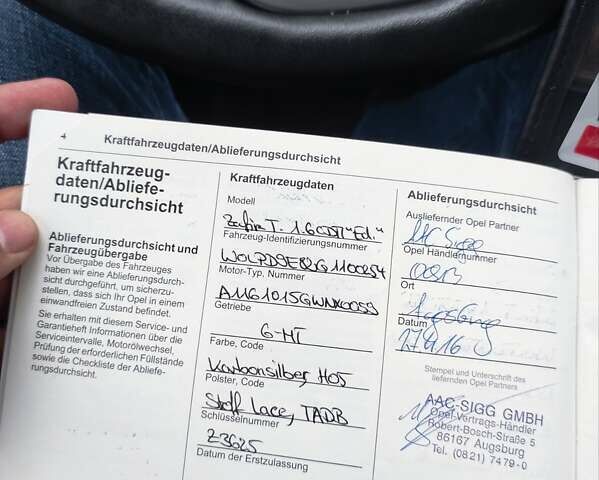 4
Kraftfahrzeugdaten/Ablieferungsdurchsicht
Kraftfahrzeug-
daten/Abliefe-
rungsdurchsicht
Ablieferungsdurchsicht und
Fahrzeugübergabe
Vor Übergabe des Fahrzeuges
haben wir eine Ablieferungsdurch-
sicht durchgeführt, um sicherzu-
stellen, dass sich Ihr Opel in einem
einwandfreien Zustand befindet.
Sie erhalten mit diesem Service- und
Garantieheft Informationen über die
Serviceintervalle, Motorölwechsel,
Prüfung der erforderlichen Füllstände
sowie die Checkliste der Abliefe-
rungsdurchsicht.
Kraftfahrzeugdaten
Modell
Zafira T. 1.6CDTI "Ed."
Fahrzeug-Identifizierungsnummer
Motor-Typ, Nummer
Getriebe
6-MT
Farbe, Code
Karbonsilber, H05
Polster, Code
Stoff Lace, TADB
Schlüsselnummer
Z3625
Datum der Erstzulassung
Ablieferungsdurchsicht
Ausliefernder Opel Partner
AAC Sigg
Opel Händlernummer
Ort
Augsburg
Datum
Stempel und Unterschrift des
liefernden Opel Partners
AAC-SIGG GMBH
Opel-Vertrags-Händler
Robert-Bosch-Straße 5
86167 Augsburg
Tel. (08 21) 74 79-0